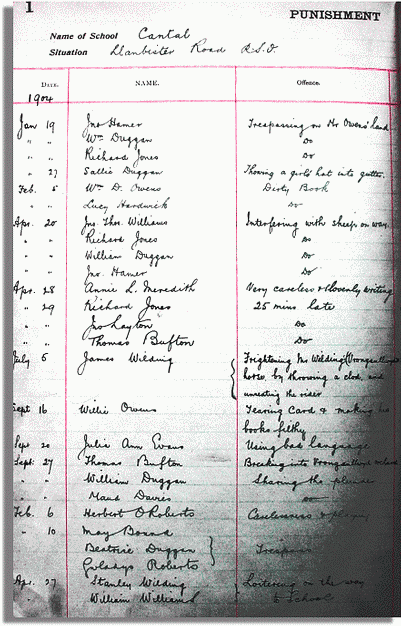 1
PUNISHMENT
Name of School Cantal
Situation Llanbister Road R.S.O
DATE. NAME. Offence.
1904
Jan 19 Jno Hamer Trespassing on Mr Owens' land
" " Wm Duggan Do
" " Richard Jones Do
" 27 Sallie Duggan Throwing a girl's hat into gutter.
Feb. 5 Wm D. Owens Dirty Book
" " Lucy Hardwick Do
Apr. 20 Jno Thos. Williams Interfering with sheep on way.
" " Richard Jones Do
" " William Duggan Do
" " Jno. Hamer Do
Apr. 28 Annie L. Meredith Very careless & slovenly writing
" 29 Richard Jones 25 mins late
" " Jno Layton Do
" " Thomas Bufton Do
July 6 James Wilding Frightening Mr Welding
horse, by throwing a clod, and
unseating the rider
Sept 16 Willie Owens Tearing Card & making his
books filthy
Sept 20 Julia Ann Evans Using bad language
Sept. 27 Thomas Bufton Breaking into
" " William Duggan Sharing the plunder
" " Maud Davies Do
Feb. 6 Herbert O Roberts Carelessness & playing
" 10 May Bound
Beatrice Duggan Trespass
Gwladys Roberts
Apr. 27 Stanley Wilding Loitering on the way
" " William Williams to School